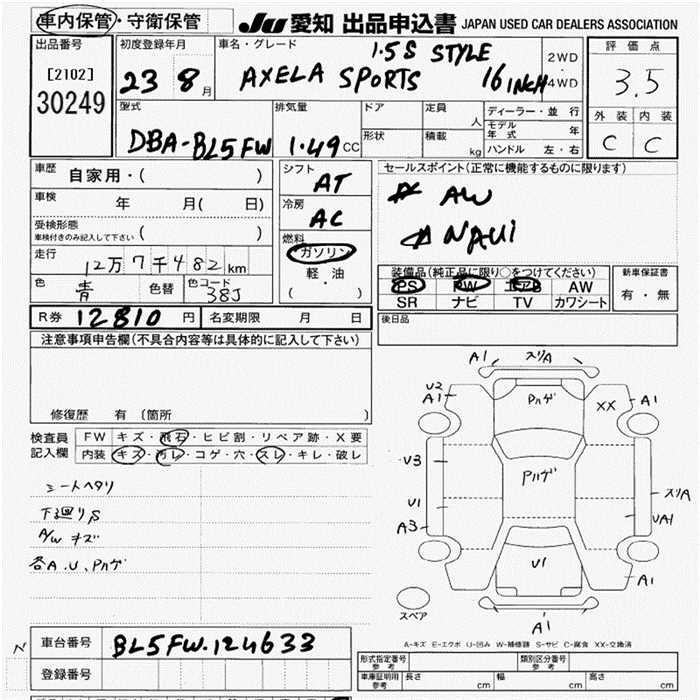 車内保管・守衛保管 JU 愛知 出品申込書 JAPAN USED CAR DEALERS ASSOCIATION
出品番号
[2102]
30249
初度登録年月
23 8 月
車名・グレード
1.5S STYLE
AXELA SPORTS 16INCH
2WD
・
4WD
評価点
3.5
外装 内装
C C
型式
DBA-BL5FW
排気量
1.49 CC
ドア
形状
定員
人
積載
kg
ディーラー・並行
モデル年式 年
ハンドル 左・右
車歴 自家用・( )
車検 年 月( 日)
受検形態
車検付きのみ記入して下さい ( )
走行
12万7千482 km
色 青 色替 色コード 38J
シフト
AT
冷房
AC
燃料
ガソリン
軽・油
( )
セールスポイント(正常に機能するものに限ります)
AW
NAVI
装備品(純正品に限り○をつけてください)
PS PW エアB AW
SR ナビ TV カワシート
新車保証書
有・無
R券 12810 円 名変期限 月 日
後日品
注意事項申告欄(不具合内容等は具体的に記入して下さい)
修復歴 有 (箇所 )
検査員
記入欄
FW キズ・飛石・ヒビ割・リペア跡・X要
内装 キズ・汚レ・コゲ・穴・スレ・キレ・破レ
シートヘタリ
下廻りS
A/W キズ
各A.U、Pハゲ
A1 スリA
U2
A1
Pハゲ
XX A1
U3
Pハゲ
U1
スリA
A3
UA1
U1
A1
A1
スペア
A-キズ E-エクボ U-凹み W-補修跡 S-サビ C-腐食 XX-交換済
N
車台番号 BL5FW-124633
登録番号
形式指定番号
参考
類別区分番号
参考
車庫証明用
参考
長さ cm 幅 cm 高さ cm